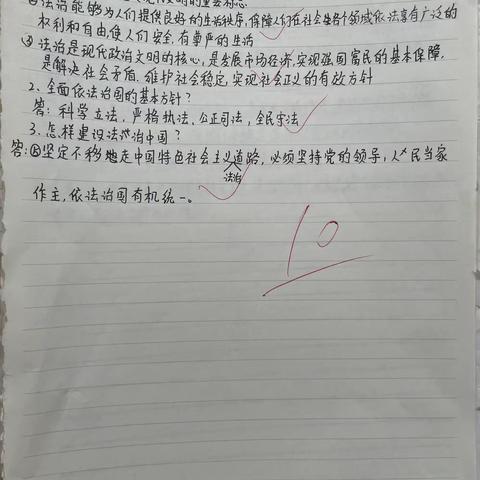 法治能够为人们提供良好的生活秩序,保障人们在社会生各个领域依法享有广泛的
权利和自由,使人们安全,有尊严的生活
③法治是现代政治文明的核心,是发展市场经济,实现强国富民的基本保障,
是解决社会矛盾,维护社会稳定,实现社会正义的有效方针
2、全面依法治国的基本方针?
答:科学立法,严格执法、公正司法,全民守法
3、怎样建设法治中国?
答:①坚定不移地走中国特色社会主义道路,必须坚持党的领导,人民当家
法治
作主,依法治国有机统一。
10